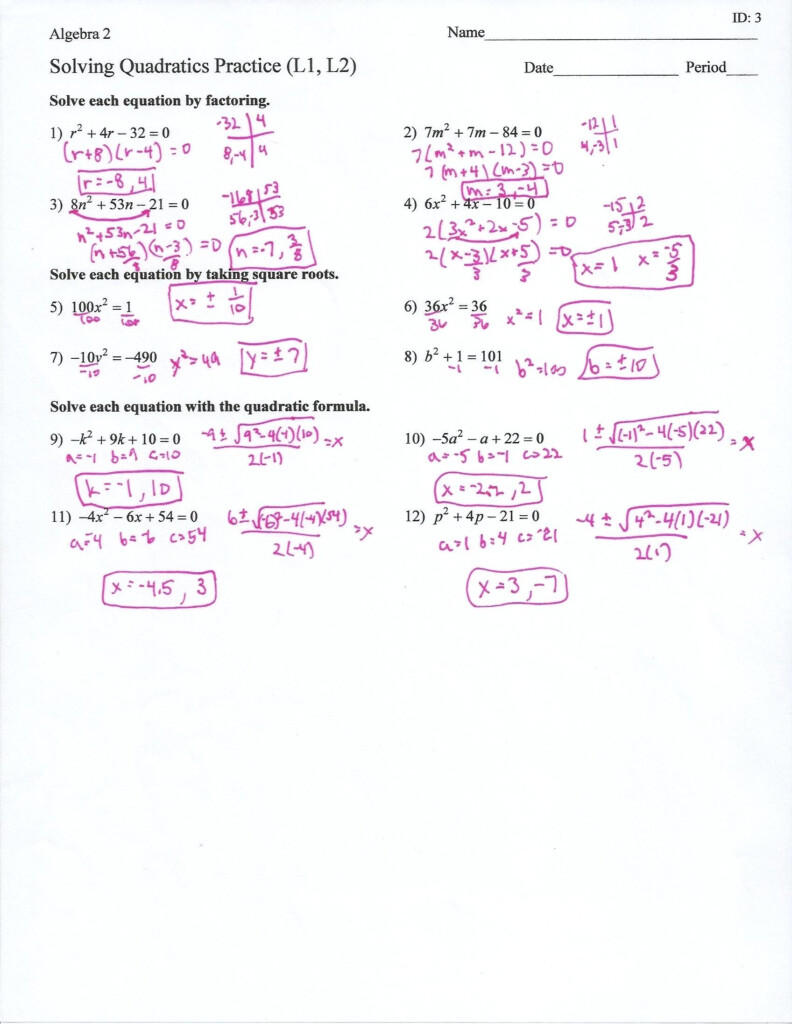 ID: 3
Algebra 2
Name
Solving Quadratics Practice (L1, L2)
Date Period
Solve each equation by factoring.
1) r² + 4r − 32 = 0
-32 | 4
8,-4 | 4
(r+8)(r-4) = 0
r = -8, 4
2) 7m² + 7m − 84 = 0
-12 | 1
4,-3 | 1
7(m² + m - 12) = 0
7(m+4)(m-3) = 0
m = 3, -4
3) 8n² + 53n − 21 = 0
-168 | 53
56,-3 | 53
n² + 53n - 21 = 0
(n + 56/8)(n - 3/8) = 0
n = -7, 3/8
4) 6x² + 4x − 10 = 0
-15 | 2
5,-3 | 2
2(3x² + 2x - 5) = 0
2(x - 3/3)(x + 5/3) = 0
x = 1 x = -5/3
Solve each equation by taking square roots.
5) 100x² = 1
100 100
x = ± 1/10
6) 36x² = 36
36 36
x² = 1
x = ±1
7) −10y² = −490
-10 -10
y² = 49
y = ± 7
8) b² + 1 = 101
-1 -1
b² = 100
b = ±10
Solve each equation with the quadratic formula.
9) −k² + 9k + 10 = 0
-9 ± √9² - 4(-1)(10) = x
2(-1)
a = -1 b = 9 c = 10
k = -1, 10
10) −5a² − a + 22 = 0
1 ± √(-1)² - 4(-5)(22) = x
2(-5)
a = -5 b = -1 c = 22
x = -2.2, 2
11) −4x² − 6x + 54 = 0
6 ± √-6² - 4(-4)(54) = x
2(-4)
a = 4 b = -6 c = 54
x = -4.5, 3
12) p² + 4p − 21 = 0
-4 ± √4² - 4(1)(-21) = x
2(1)
a = 1 b = 4 c = -21
x = 3, -7